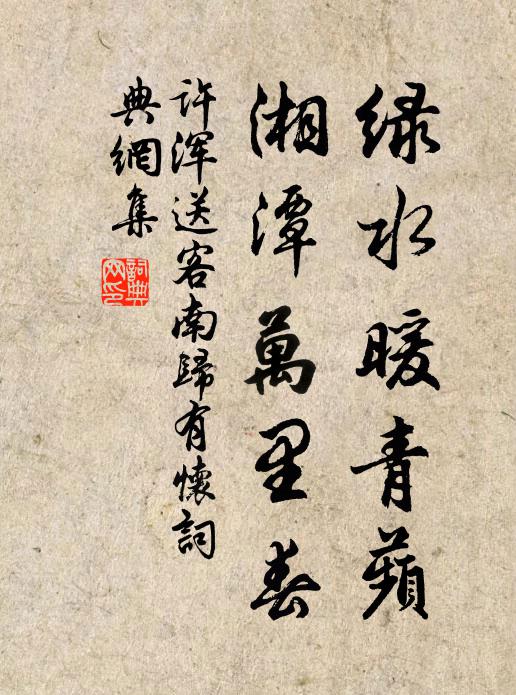 绿水暖青蘋
湘潭萬里春
许浑送客南歸有懷詞
典網集
詞典網印